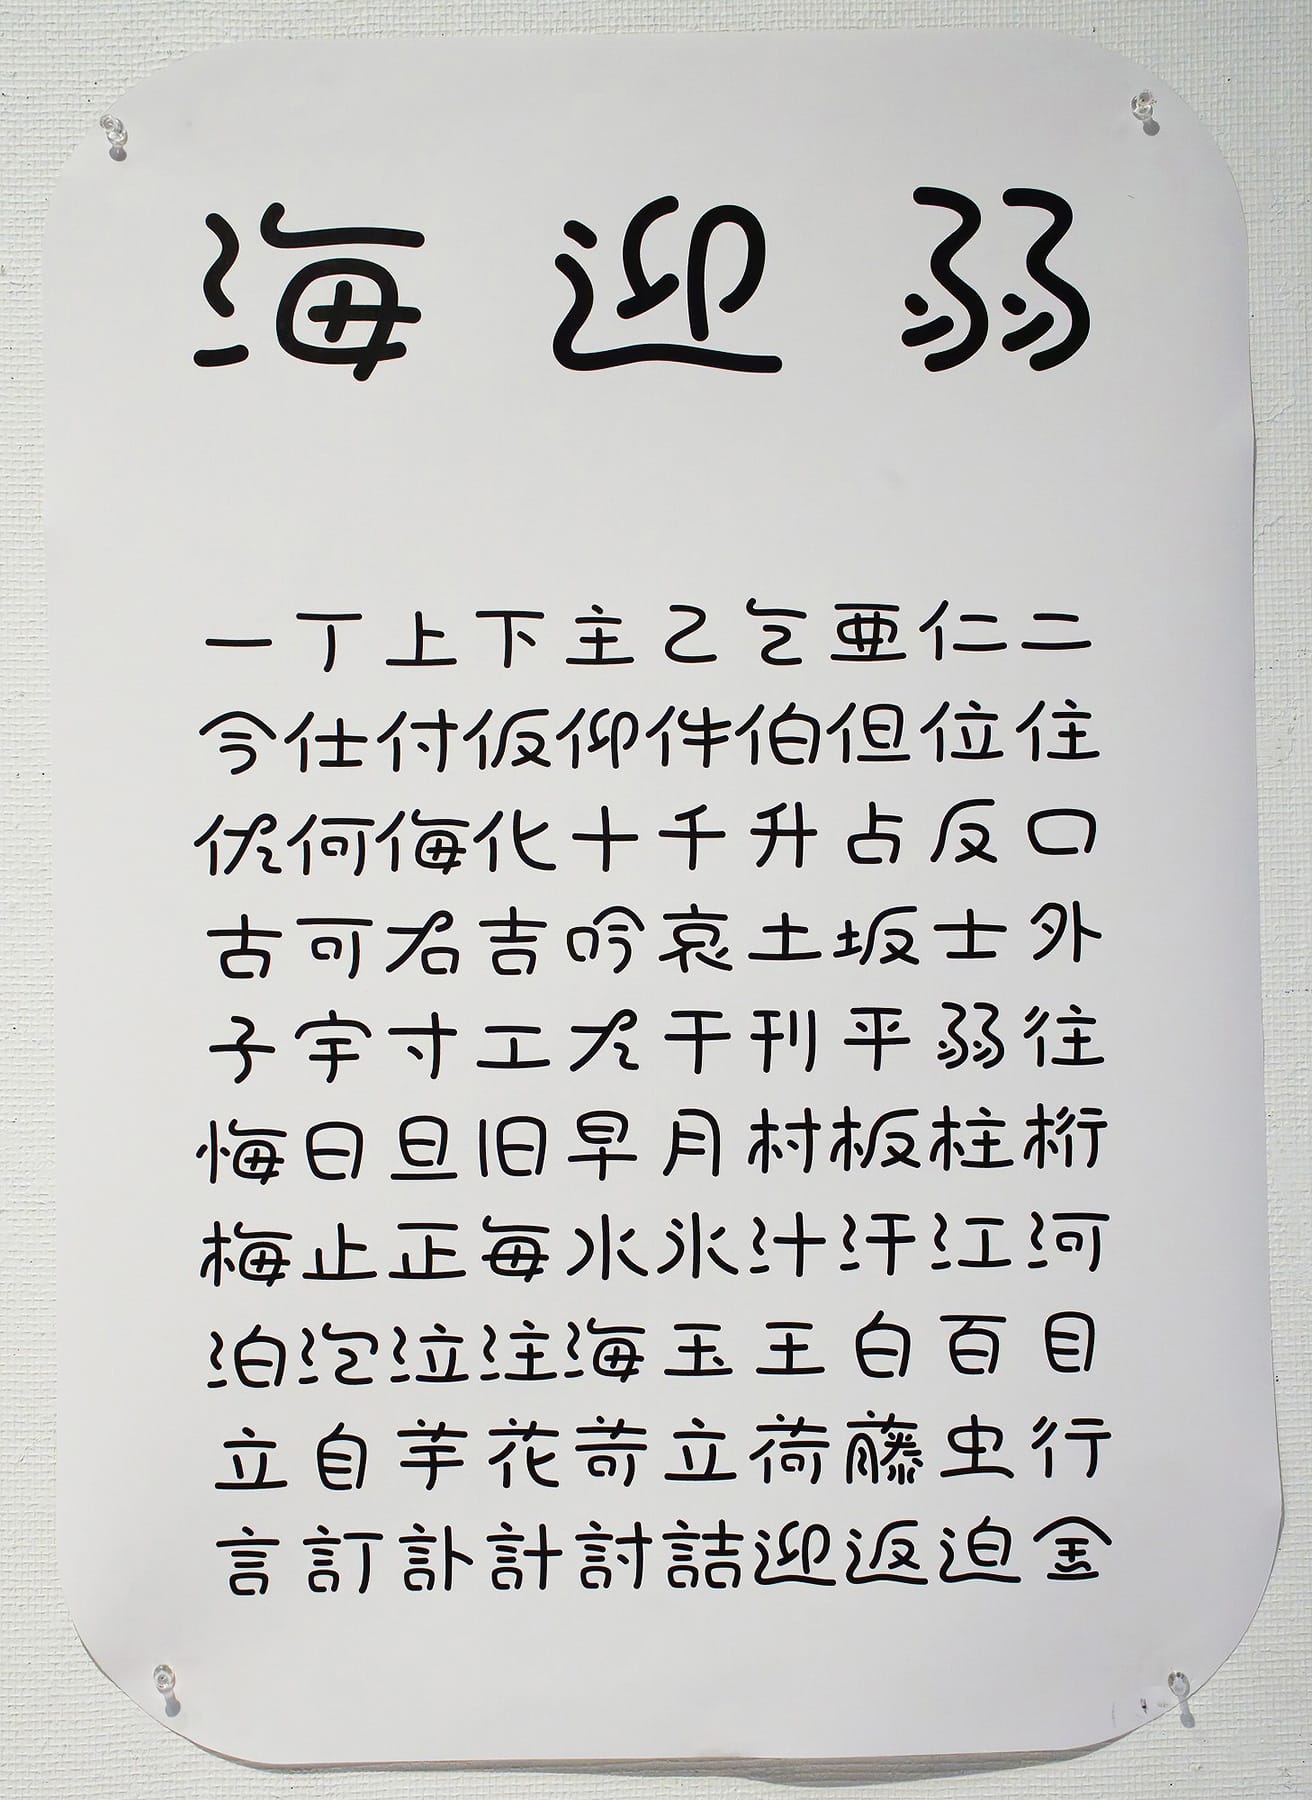 海 迎 弱
一丁上下主乙乞亜仁二
今仕付仮仰件伯但位住
佐何侮化十千升占反口
古可右吉吟哀土坂士外
子宇寸工左干刊平弱往
悔日旦旧早月村板柱桁
梅止正毎水氷汁汗江河
泊泡泣注海玉王白百目
立自芋花苛立荷藤虫行
言訂訃計討詰迎返迫金